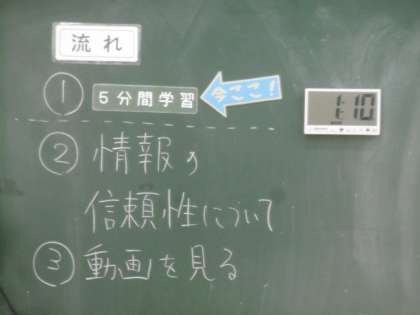 流れ
① 5分間学習 今ここ!
1:10
② 情報の
信頼性について
③ 動画を見る